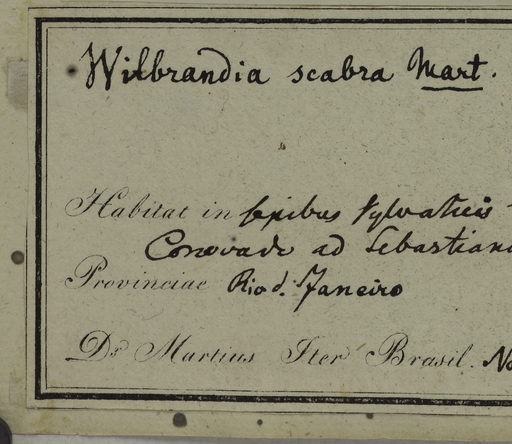 Wilbrandia scabra Mart.
Habitat in sepibus sylvaticis
Corcovado ad Sebastiano
Provinciae Rio d. Janeiro
Dr Martius Iter Brasil. No